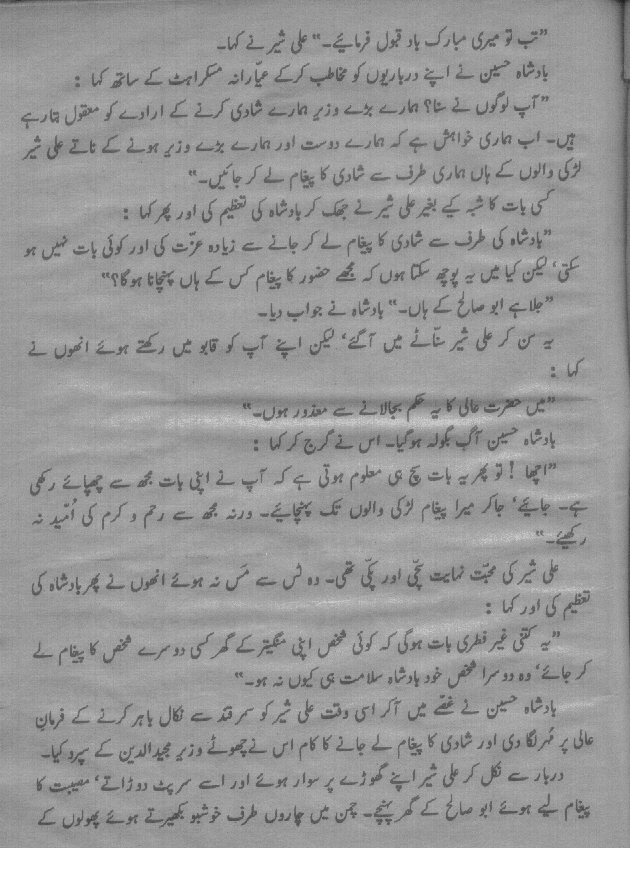 ”تب تو میری مبارک باد قبول فرمائیے۔“ علی شیر نے کہا۔
بادشاہ حسین نے اپنے درباریوں کو مخاطب کرکے عیّارانہ مسکراہٹ کے ساتھ کہا :
”آپ لوگوں نے سنا؟ ہمارے بڑے وزیر ہمارے شادی کرنے کے ارادے کو معقول بتا رہے
ہیں۔ اب ہماری خواہش ہے کہ ہمارے دوست اور ہمارے بڑے وزیر ہونے کے ناتے علی شیر
لڑکی والوں کے ہاں ہماری طرف سے شادی کا پیغام لے کر جائیں۔“
کسی بات کا شبہ کیے بغیر علی شیر نے جھک کر بادشاہ کی تعظیم کی اور پھر کہا :
”بادشاہ کی طرف سے شادی کا پیغام لے کر جانے سے زیادہ عزّت کی اور کوئی بات نہیں ہو
سکتی‘ لیکن کیا میں یہ پوچھ سکتا ہوں کہ مجھے حضور کا پیغام کس کے ہاں پہنچانا ہوگا؟“
”جلاہے ابو صالح کے ہاں۔“ بادشاہ نے جواب دیا۔
یہ سن کر علی شیر سنّاٹے میں آگئے‘ لیکن اپنے آپ کو قابو میں رکھتے ہوئے انھوں نے
کہا :
”میں حضرت عالی کا یہ حکم بجالانے سے معذور ہوں۔“
بادشاہ حسین آگ بگولہ ہوگیا۔ اس نے گرج کر کہا :
”اچھا ! تو پھر یہ بات سچ ہی معلوم ہوتی ہے کہ آپ نے اپنی بات مجھ سے چھپائے رکھی
ہے۔ جائیے‘ جاکر میرا پیغام لڑکی والوں تک پہنچائیے۔ ورنہ مجھ سے رحم و کرم کی اُمّید نہ
رکھیئے۔“
علی شیر کی محبّت نہایت سچّی اور پکّی تھی۔ وہ ٹس سے مَس نہ ہوئے انھوں نے پھر بادشاہ کی
تعظیم کی اور کہا :
”یہ کتنی غیر فطری بات ہوگی کہ کوئی شخص اپنی منگیتر کے گھر کسی دوسرے شخص کا پیغام لے
کر جائے‘ وہ دوسرا شخص خود بادشاہ سلامت ہی کیوں نہ ہو۔“
بادشاہ حسین نے غصّے میں آکر اسی وقت علی شیر کو سمرقند سے نکال باہر کرنے کے فرمانِ
عالی پر مُہر لگا دی اور شادی کا پیغام لے جانے کا کام اس نے چھوٹے وزیر مجیدالدین کے سپرد کیا۔
دربار سے نکل کر علی شیر اپنے گھوڑے پر سوار ہوئے اور اسے سرپٹ دوڑاتے‘ مصیبت کا
پیغام لیے ہوئے ابو صالح کے گھر پہنچے۔ چمن میں چاروں طرف خوشبو بکھیرتے ہوئے پھولوں کے